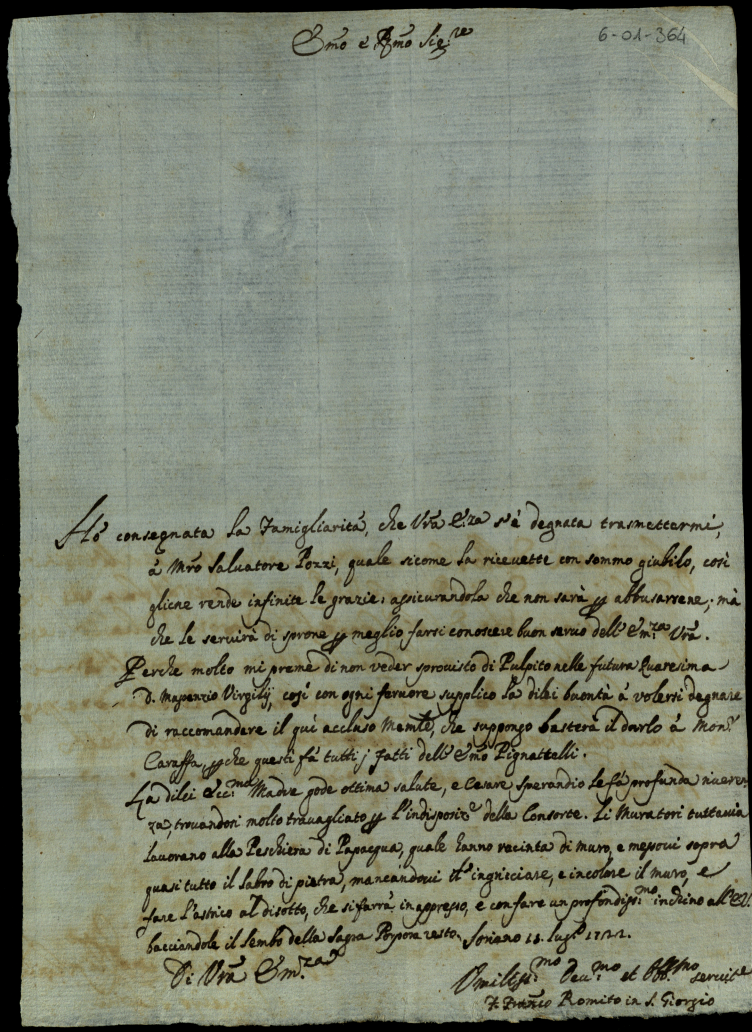 Emo e Rmo Sig.re
6-01-364
Hò consegnata la Famigliarità, che Vrã E.za s'è degnata trasmettermi,
à Mrõ Salvatore Pozzi, quale sicome la ricevette con sommo giubilo, così
gliene rende infinite le grazie; assicurandola che non sarà p abbusarsene; mà
che le servirà di sprone p meglio farsi conoscere buon servo dell' Em.za Vrã.
Perche molto mi preme di non veder sprovisto di Pulpito nelle futura Quaresima
D. Virgilij, così con ogni fervore supplico la dilei buontà à volersi degnare
di raccomandare il quì accluso che suppongo basterà il darlo à Mon.r
Caraffa, p che questi fà tutti j fatti dell' Emõ Pignattelli.
La dilei Ecc.ma Madre gode ottima salute, e Cesare Sperandio le fà profonda riveren-
za, trovandosi molto travagliato p l'indisposiz.e della Consorte. Li Muratori tuttavia
lavorano alla Peschiera di Papacqua, quale hanno recinta di muro, e messovi sopra
quasi tutto il labro di pietra, mancandovi e incolore il muro, e
fare l'astico al disotto, che si farrà in appresso, e con fare un profondiss.mo inchino all'
bacciandole il lembo della Sagra Porpora resto. Soriano lug.o 1722.
Di Vrã Em.za
Umiliss.mo Dev.mo et Obb.mo
Romito in S. Giorgio